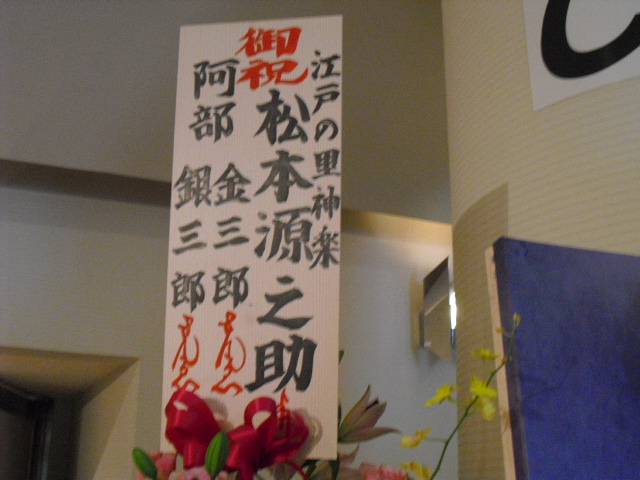 御祝
江戸の里神楽
松本源之助
阿部
金三郎
銀三郎